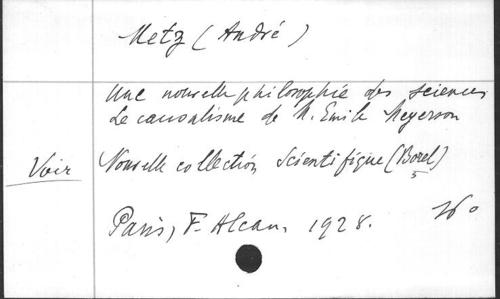 Metz (André)
Une nouvelle philosophie des sciences
Le causalisme de M. Emile Meyerson
Voir Nouvelle collection scientifique (Borel)
Paris, F. Alcan, 1928.